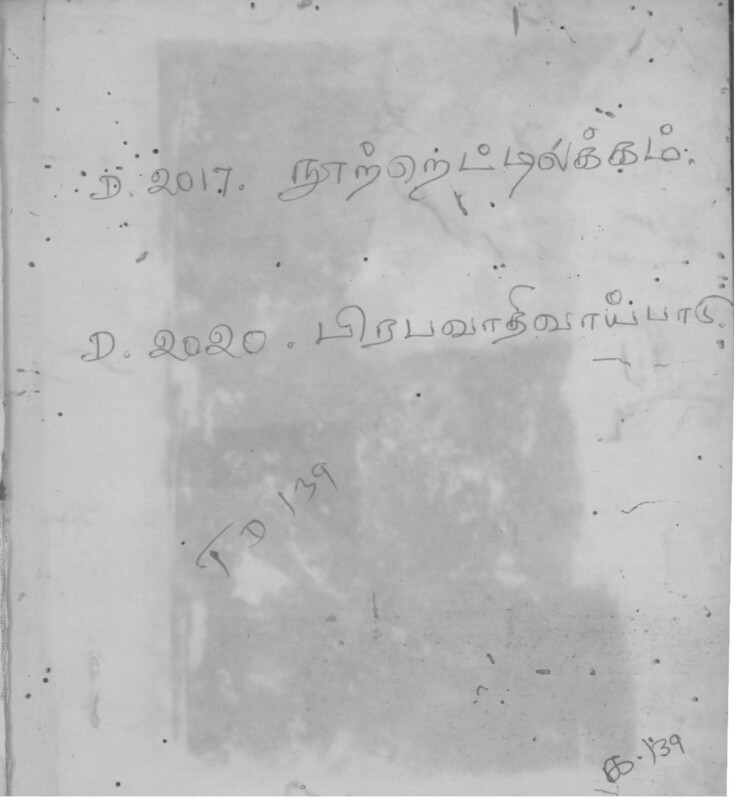 D. 2017. நூற்றெட்டிலக்கம்.
D. 2020. பிரபவாதிவாய்பாடு.
TD 139
க. 139